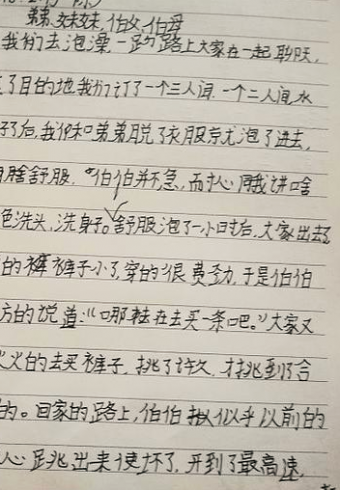 弟弟,妹妹,伯父,伯母
我们去泡澡,一路上大家在一起聊天,
了目的地我们订了一个三人间,一个二人间,水
子了后,我伯和弟弟脱了衣服就泡了进去,
舒服,"伯伯并不急,而
色洗头,洗身子。舒服泡了一小时后,大家出去
的裤裤子小了,穿的很费劲,于是伯伯
方的说道:"口那就在去买一条吧。"大家又
火的去买裤子,挑了许久,才挑到了合
的。回家的路上,伯伯似乎以前的
心跳出来使坏了,开到了最高速,